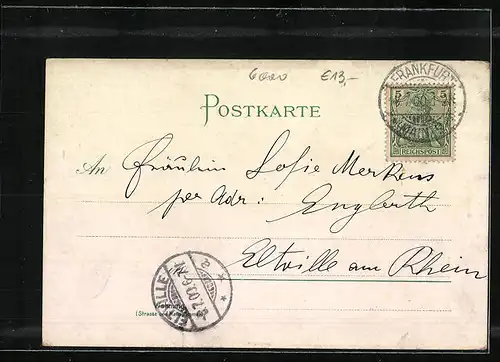 6000 €13,-
POSTKARTE
FRANKFURT
5 5
REICHSPOST
An Fräulein Sofie Merkens
per Adr: Englerth
Eltville am Rhein
ELTVILLE
(Strasse und